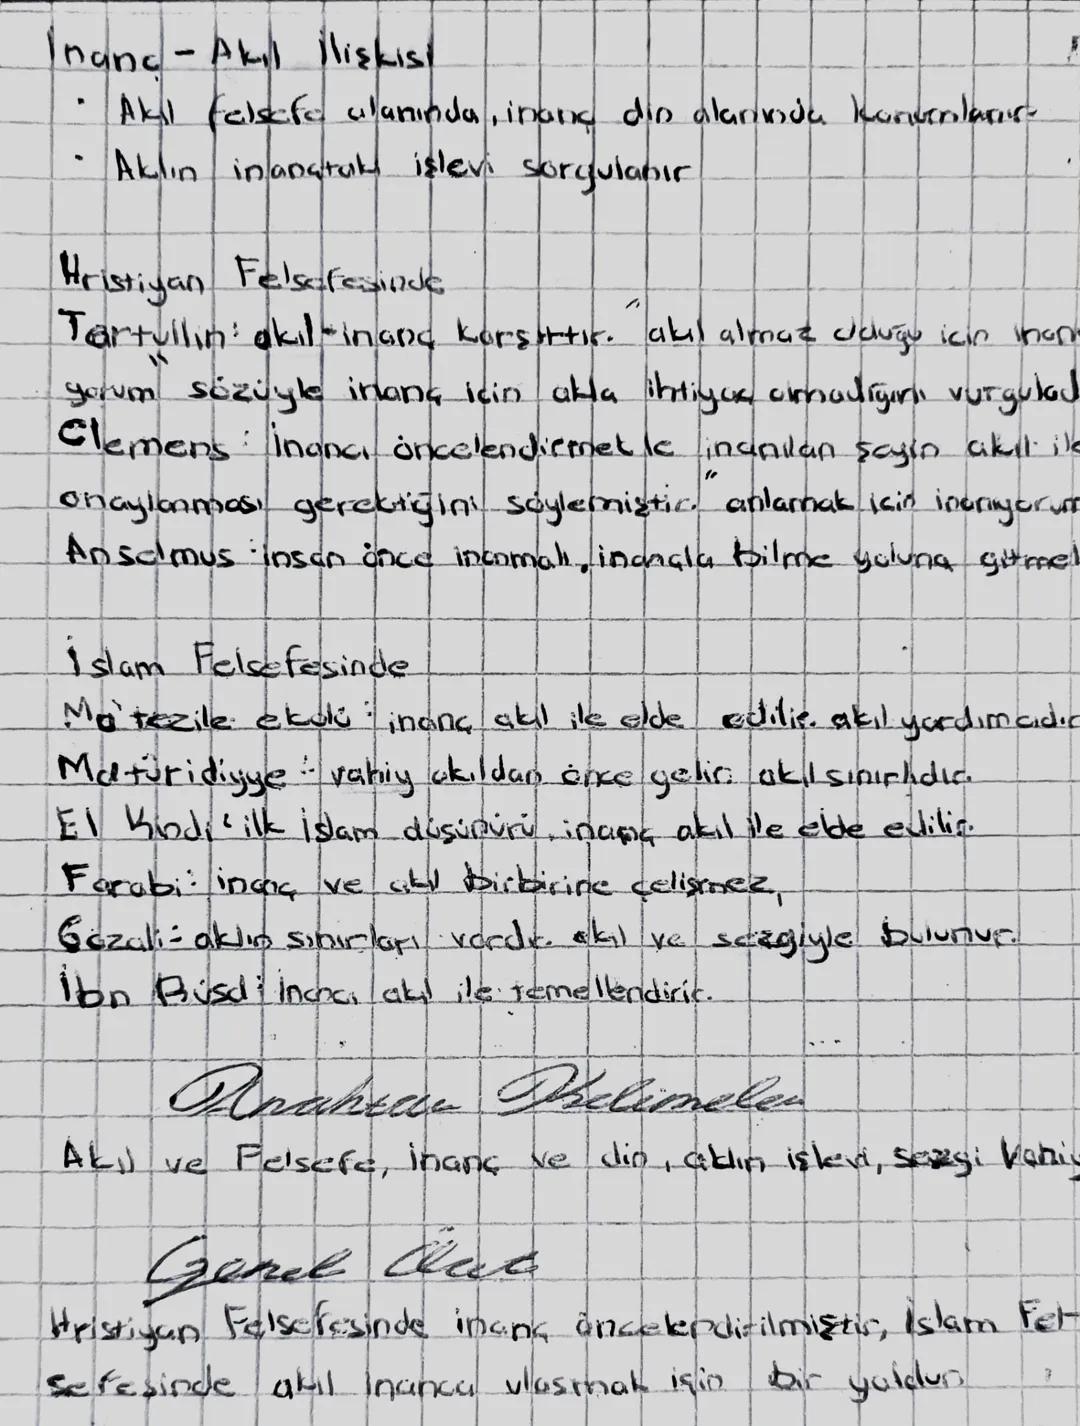 İnanç - Akıl İlişkisi
• Akıl felsefe alanında, inanç din alanında konumlanır
• Aklın inançtaki işlevi sorgulanır
Hristiyan Felsefesinde
Tertullin: akıl-inanç karşıttır. "akıl almaz olduğu için inanı
yorum" sözüyle inanç için akla ihtiyaç olmadığını vurgulad
Clemens: İnancı öncelendirmekle inanılan şeyin akıl ile
onaylanması gerektiğini söylemiştir. "anlamak için inanıyorum
Anselmus: insan önce inanmalı, inançla bilme yoluna gitmel
İslam Felsefesinde
Mu'tezile ekolü: inanç akıl ile elde edilir. akıl yardımcıdır
Maturidiyye: vahiy akıldan önce gelir. akıl sınırlıdır.
El Kindi: ilk İslam düşünürü, inanç akıl ile elde edilir.
Farabi: inanç ve akıl birbirine çelişmez,
Gazali: aklın sınırları vardır. akıl ve sezgiyle bulunur.
İbn Rüşd: İnancı akıl ile temellendirir.
Anahtar Kelimeler
Akıl ve Felsefe, inanç ve din, aklın işlevi, sezgi Vahiy
Genel Özet
Hristiyan Felsefesinde inanç öncelendirilmiştir, İslam Fel-
sefesinde akıl inanca ulaşmak için bir yoldur.